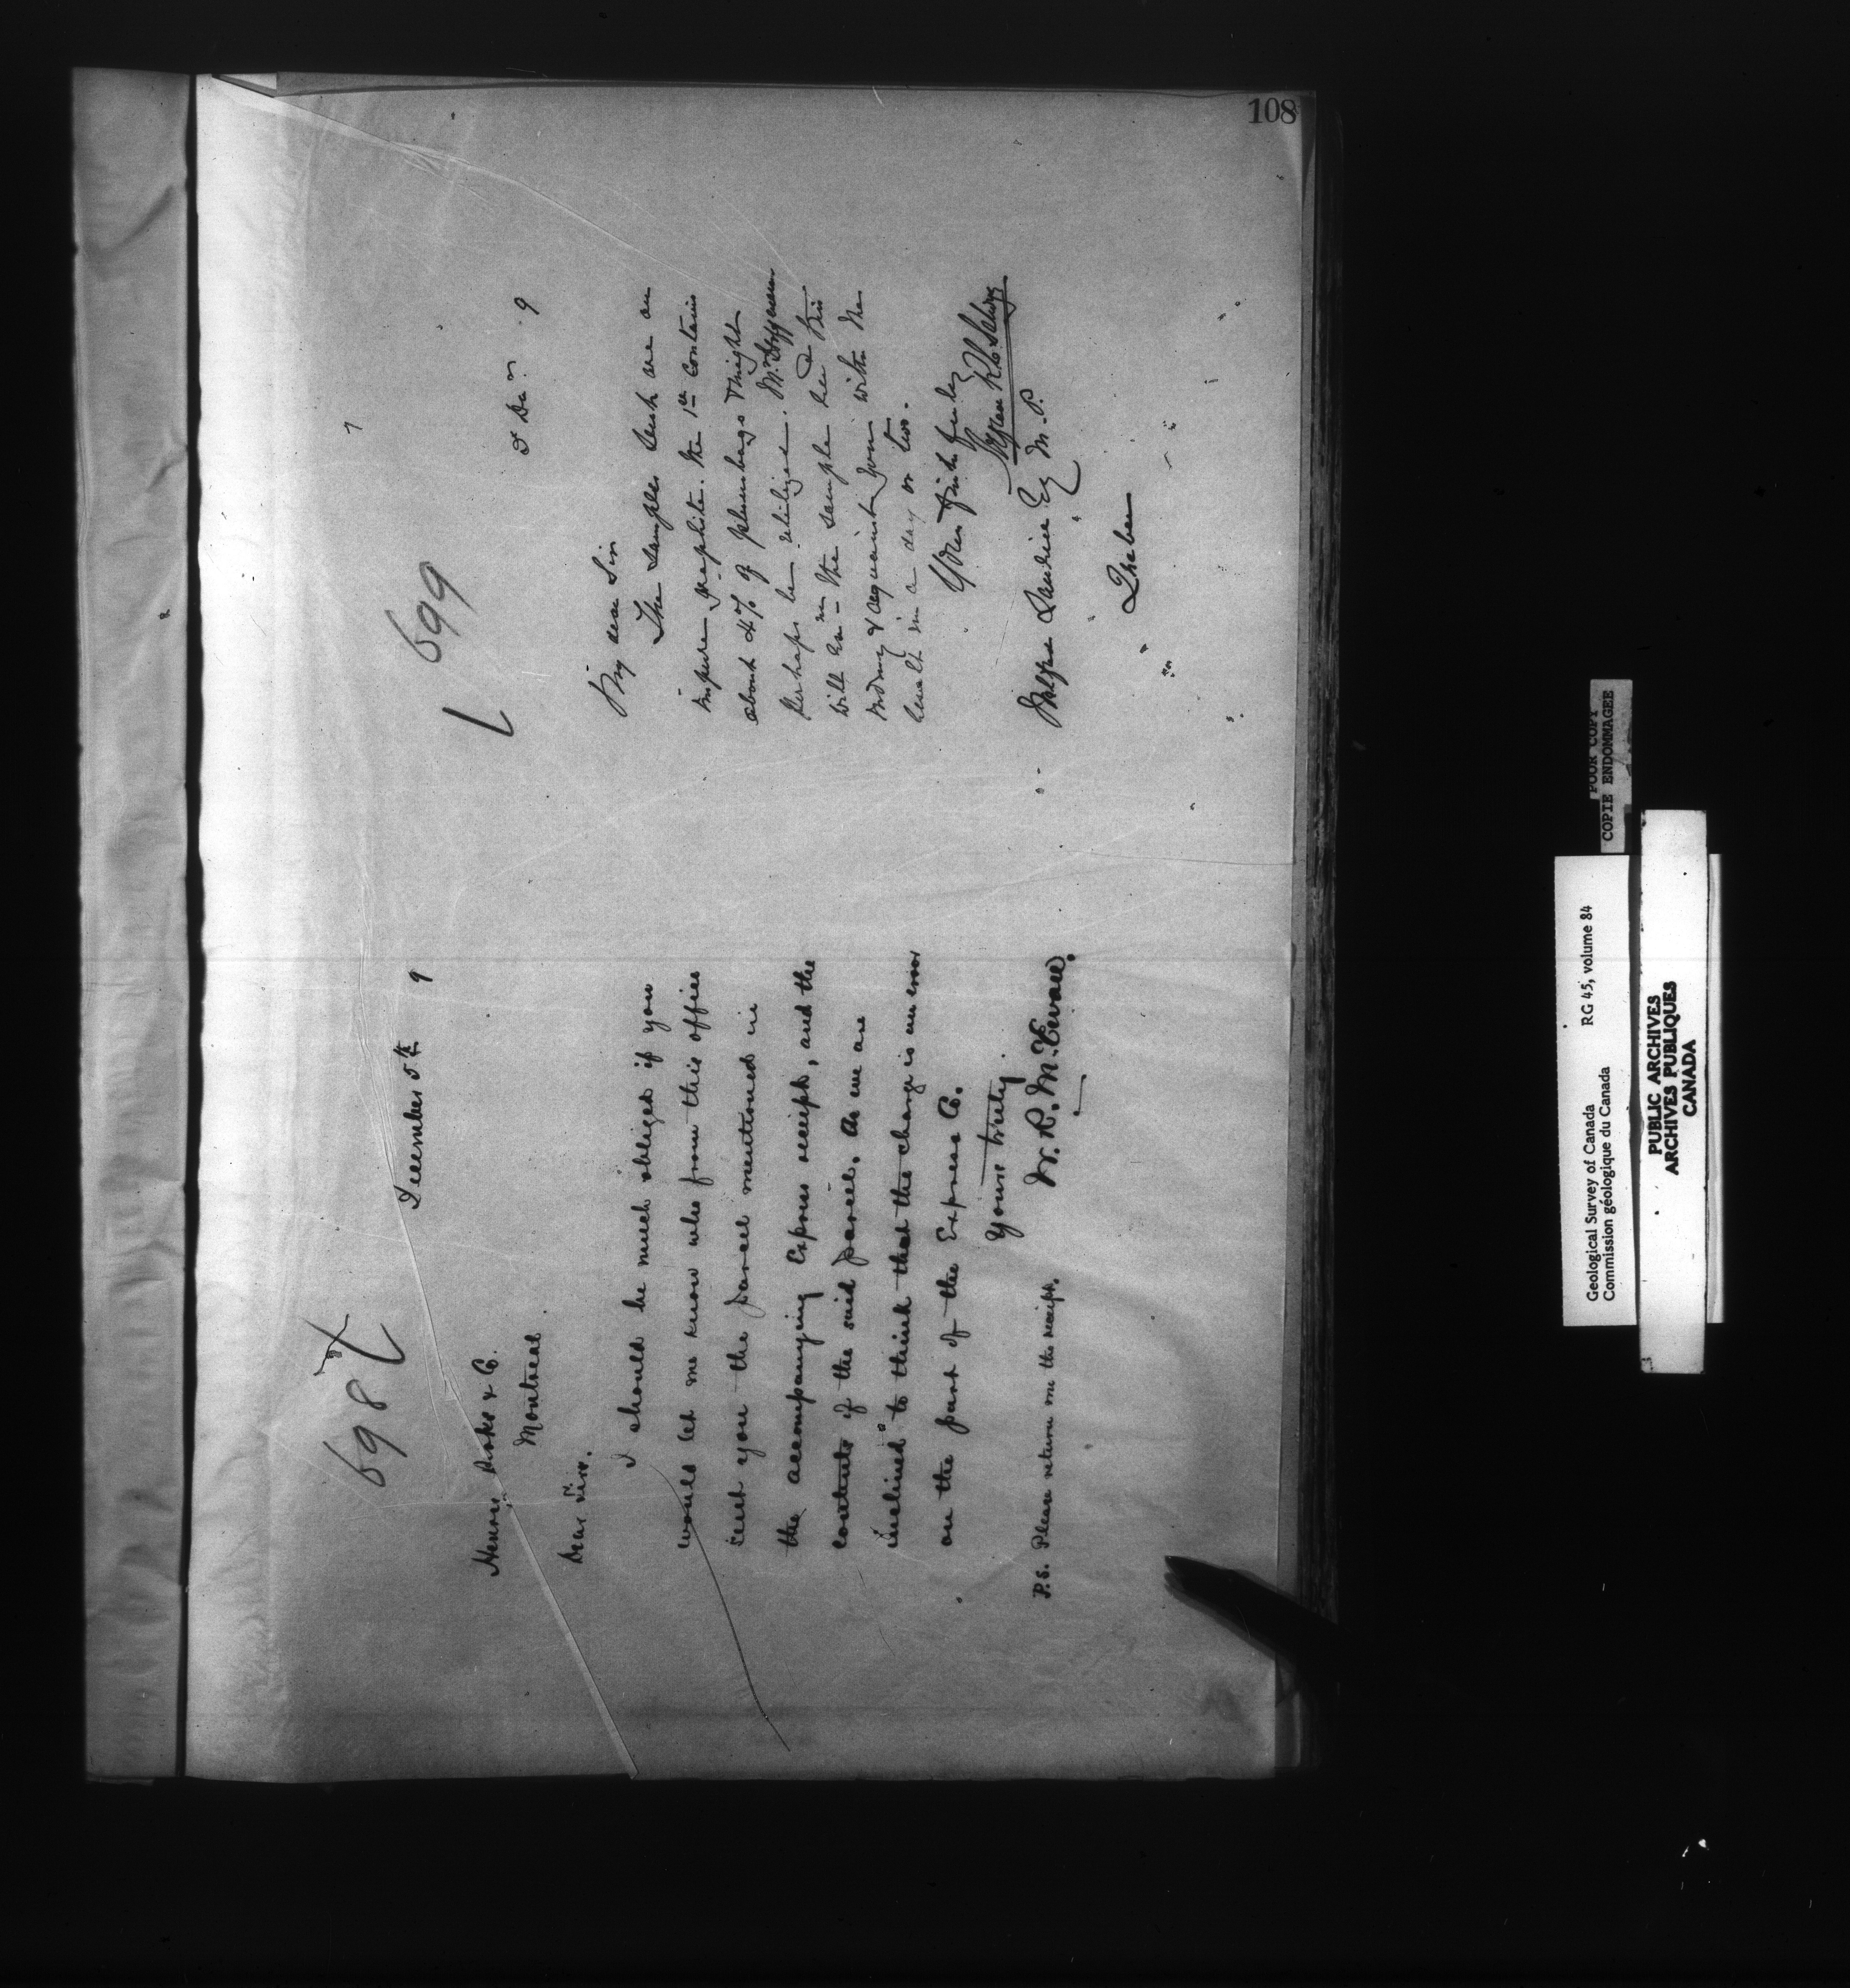 108
698
December 5th 9
& Co.
Montreal
Dear Sirs.
I should be much obliged if you
would let me know who from this office
sent you the parcel mentioned in
the accompanying Express receipt, and the
contents of the said parcel. As we are
inclined to think that the charge is an error
on the part of the Express Co.
Yours truly
W. R. McEwan.
P.S. Please return me the receipt.
699
5 Dec. 9
My dear Sir
The samples sent are an
impure graphite. The 1st contains
about 4% of plumbago & might
perhaps be utilized. Mr Hoffmann
will in the sample
& acquaint you with the
result in a day or two.
Yours faithfully
Alfred R. C. Selwyn
Esq M.P.
Quebec
Geological Survey of Canada RG 45, volume 84
Commission géologique du Canada
POOR COPY
COPIE ENDOMMAGEE
PUBLIC ARCHIVES
ARCHIVES PUBLIQUES
CANADA